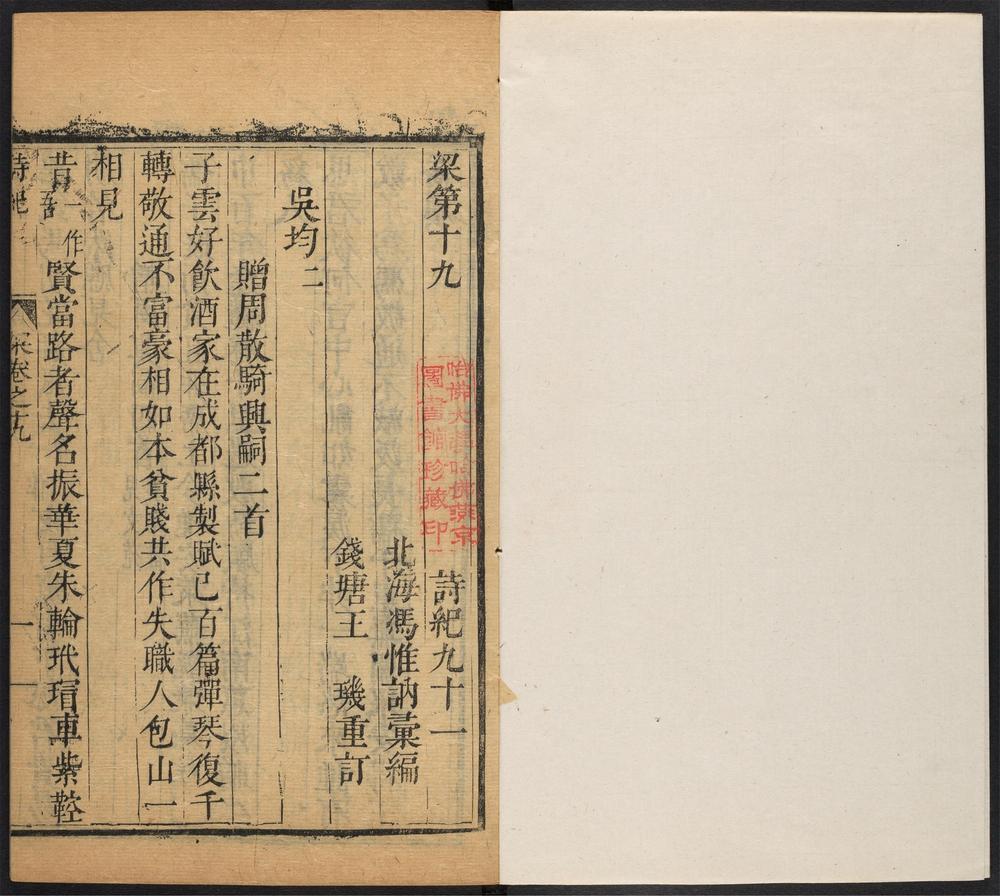 梁第十九 詩紀九十一
北海馮惟訥彙編
錢塘王 璣重訂
吳均二
贈周散騎興嗣二首
子雲好飲酒家在成都縣製賦已百篇彈琴復千
轉敬通不富豪相如本貧賤共作失職人包山一
相見
昔一作吾賢當路者聲名振華夏朱輪玳瑁車紫鞚
詩紀 梁卷之十九 一
哈佛大學哈佛燕京
圖書館珍藏印